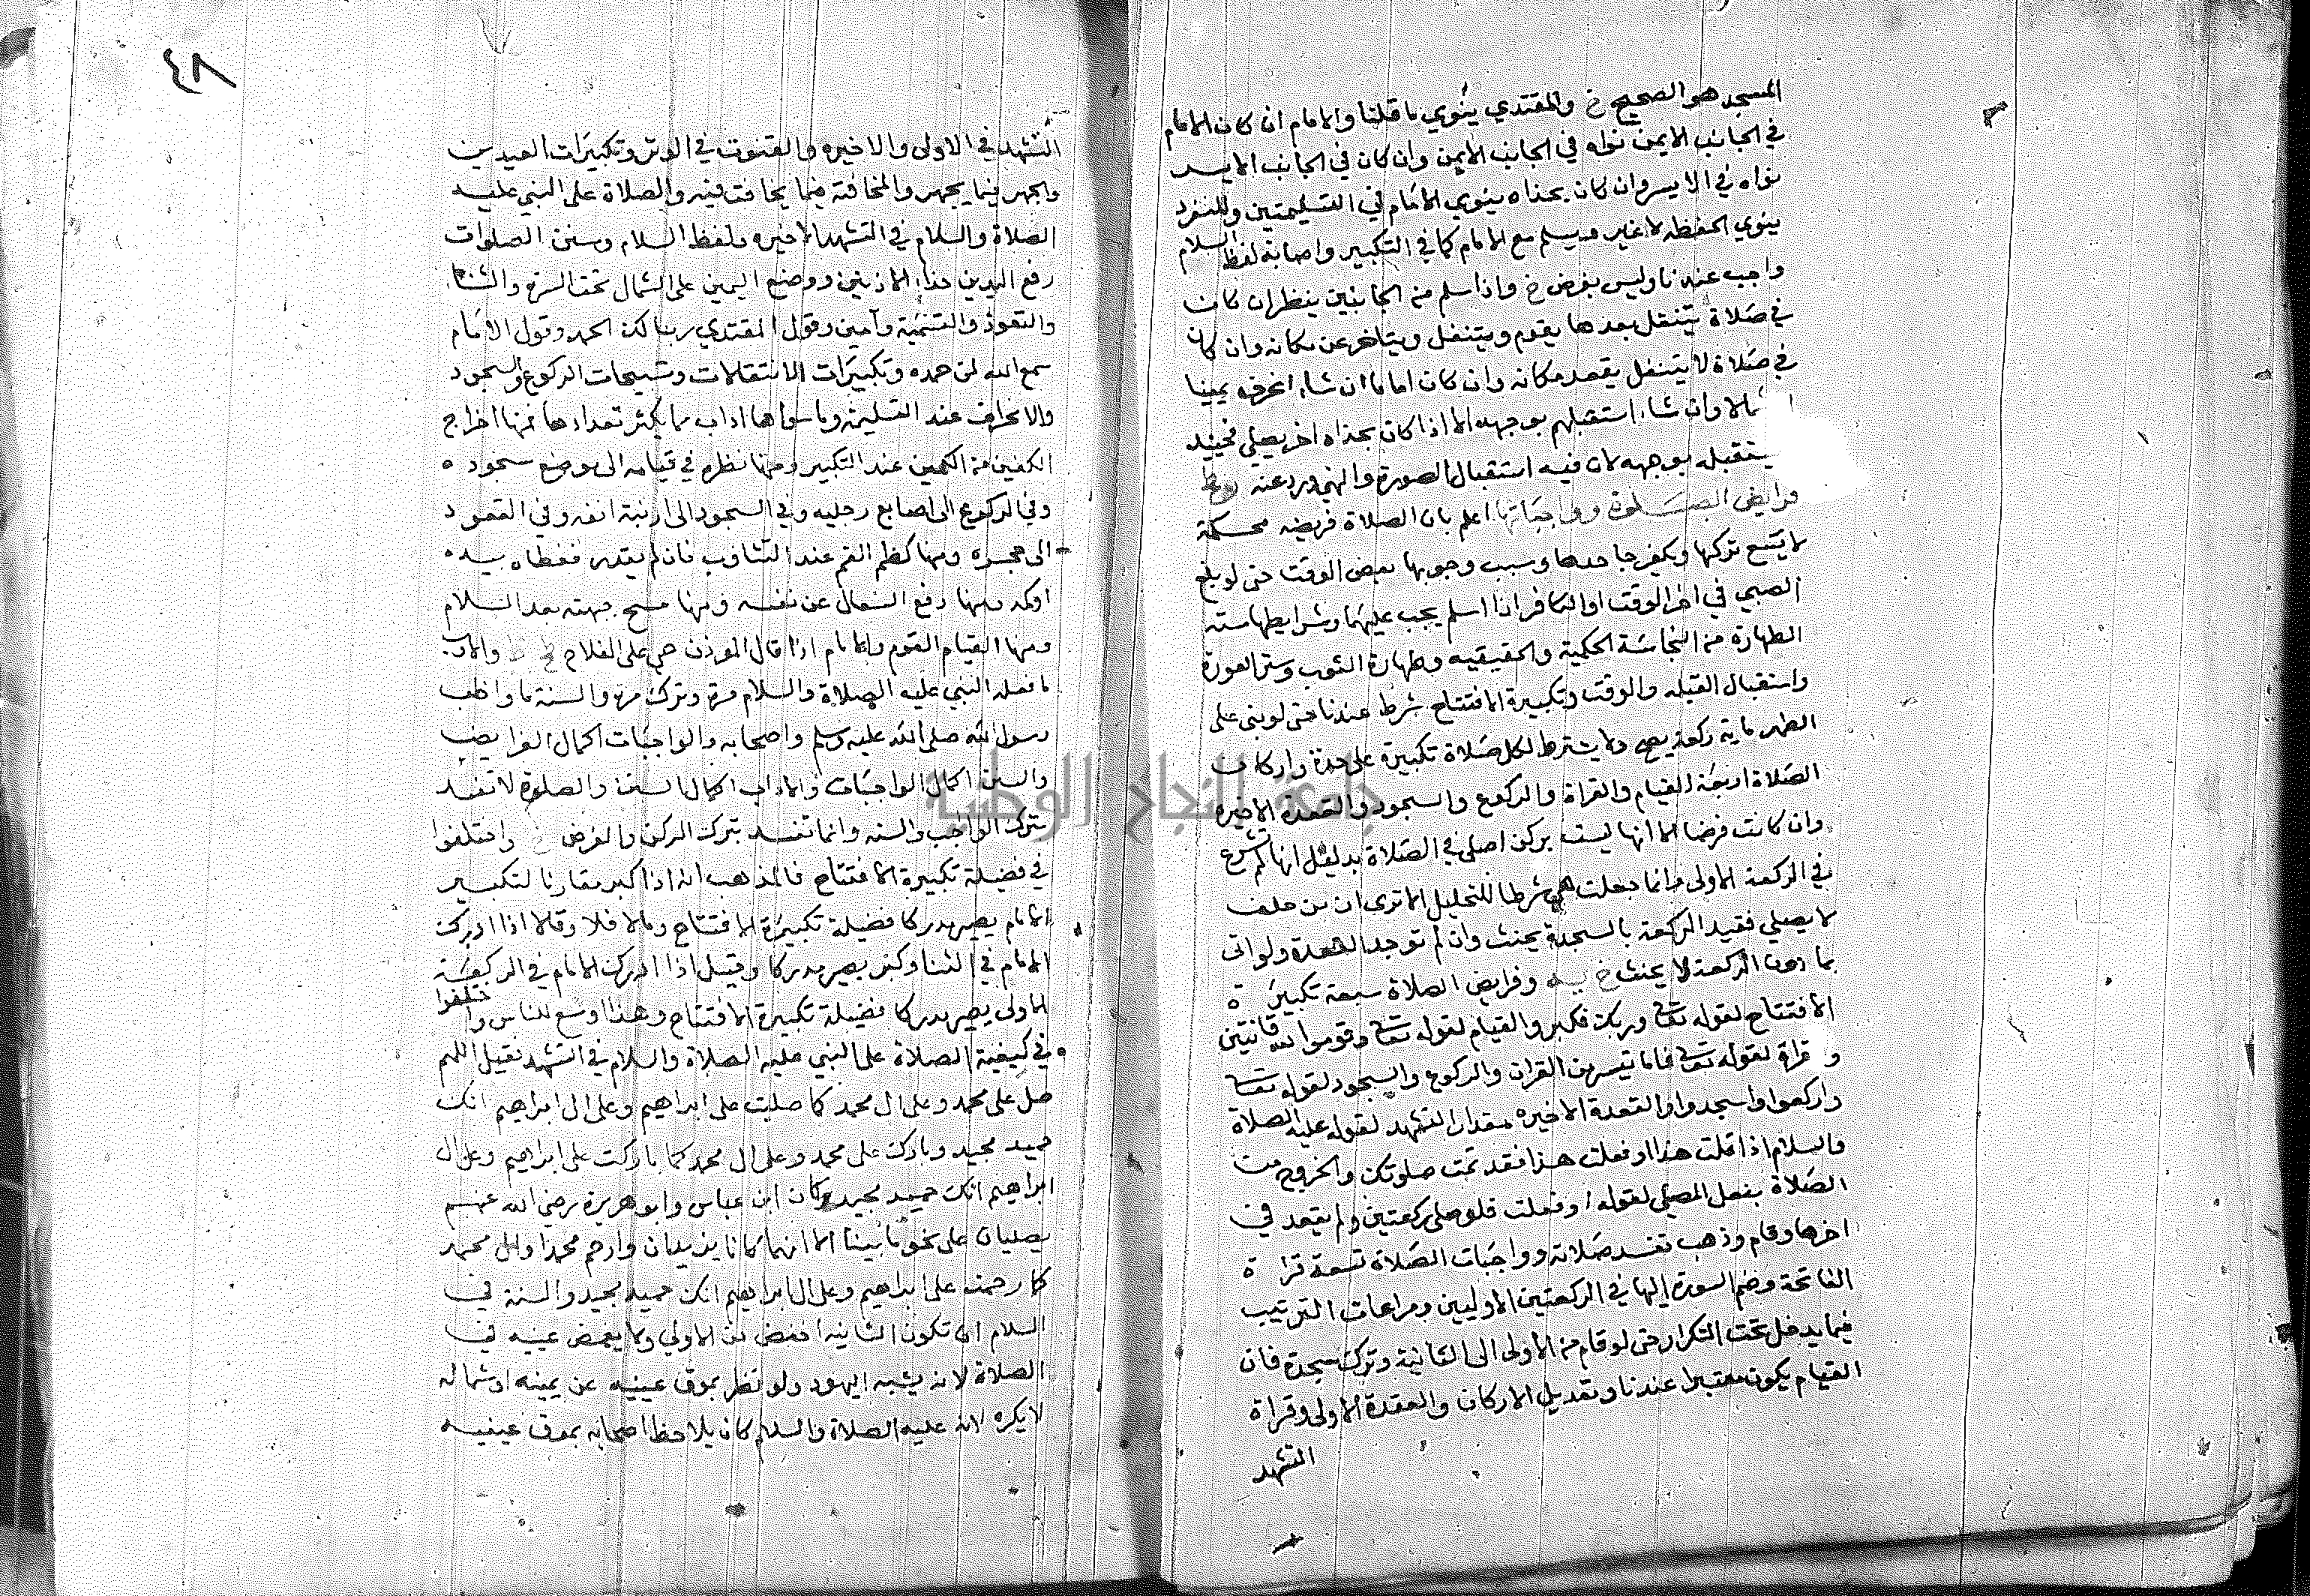 المسجد هو الصحيح خ والمقتدي ينوي ما قلنا والامام ان كان الامام
في الجانب الايمن نواه في الجانب الايمن وان كان في الجانب الايسر
نواه في الايسر وان كان بحذاه ينوي الامام في التسليمتين والمنفرد
ينوي الحفظه لا غير ويسلم مع الامام كما في التكبير واصابة لفظ السلام
واجب عندنا وليس بفرض خ واذا سلم من الجانبين ينظر ان كان
في صلاة يتنفل بعدها يقوم ويتنفل ويتاخر عن مكانه وان كان
في صلاة لا يتنفل يقعد مكانه وان كان اماما ان شاء انحرف يمينا
شمالا وان شاء استقبلهم بوجهه الا اذا كان بحذاه اخر يصلي فحينيذ
يستقبله بوجهه لان فيه استقبال الصورة والنهي ورد عنه
فرايض الصلوة وواجباتها اعلم بان الصلاة فريضه محكمة
لا يتسع تركها ويكفر جاحدها وسبب وجوبها بعض الوقت حتى لو بلغ
الصبي في اخر الوقت او الكافر اذا اسلم يجب عليهما وشرايطها سته
الطهارة من النجاسة الحكمية والحقيقيه وطهارة الثوب وستر العورة
واستقبال القبله والوقت وتكبيرة الافتتاح شرط عندنا حتى لو بنى على
الطهر ماية ركعة يصح ولا يشترط لكل صلاة تكبيرة على حدة واركان
الصلاة اربعة القيام والقراة والركوع والسجود والقعدة الاخيره
وان كانت فرضا الا انها ليست بركن اصلي في الصلاة بدليل انها لم تشرع
في الركعة الاولى وانما جعلت هي شرطا للتحليل الا ترى ان من حلف
لا يصلي فقيد الركعة بالسجدة يحنث وان لم توجد القعدة ولو اتى
بما دون الركعة لا يحنث خ وفرايض الصلاة سبعة تكبيرة
الافتتاح لقوله تعالى وربك فكبر والقيام لقوله تعالى وقوموا لله قانتين
والقراة لقوله تعالى فاقراوا ما تيسر من القران والركوع والسجود لقوله تعالى
واركعوا واسجدوا والقعدة الاخيره مقدار التشهد لقوله عليه الصلاة
والسلام اذا قلت هذا او فعلت هذا فقد تمت صلوتك والخروج من
الصلاة بفعل المصلي لقوله او فعلت فلو صلى ركعتين ولم يقعد في
اخرها وقام وذهب تفسد صلاته وواجبات الصلاة تسعة قراة
الفاتحة وضم السورة اليها في الركعتين الاوليين ومراعات الترتيب
فيما يدخل تحت التكرار حتى لو قام من الاولى الى الثانية وترك سجدة فان
القيام يكون معتبرا عندنا وتعديل الاركان والقعدة الاولى وقراة
التشهد
٤٨
التشهد في الاولى والاخيره والقنوت في الوتر وتكبيرات العيدين
والجهر فيما يجهر والمخافتة فيما يخافت فيه والصلاة على النبي عليه
الصلاة والسلام في التشهد الاخيره ولفظ السلام وسنن الصلوات
رفع اليدين حذاء الاذنين ووضع اليمين على الشمال تحت السرة والثناء
والتعوذ والتسمية وآمين وقول المقتدي ربنا لك الحمد وقول الامام
سمع الله لمن حمده وتكبيرات الانتقالات وتسبيحات الركوع والسجود
والانحراف عند التسليمة وما سواها اداب مما يكثر تعدادها فمنها اخراج
الكفين من الكمين عند التكبير ومنها نظره في قيامه الى موضع سجوده
وفي الركوع الى اصابع رجليه وفي السجود الى ارنبة انفه وفي القعود
الى حجره ومنها كظم الفم عند التثاوب فان لم يقدر فغطاه بيده
اوكمه ومنها دفع السعال عن نفسه ومنها مسح جبهته بعد السلام
ومنها القيام القوم والامام اذا قال الموذن حي على الفلاح والادب
ما فعله النبي عليه الصلاة والسلام مرة وترك مرة والسنة ما واظب
رسول الله صلى الله عليه وسلم واصحابه والواجبات اكمال الفرايض
والسنن اكمال الواجبات والاداب اكمال السنن والصلوة لا تفسد
بترك الواجب والسنه وانما تفسد بترك الركن والفرض خ واختلفوا
في فضيلة تكبيرة الافتتاح فالمذهب انه اذا كبر مقارنا لتكبير
الامام يصير مدركا فضيلة تكبيرة الافتتاح ومالا فلا وقالا اذا ادرك
الامام في الثنا وكبر يصير مدركا وقيل اذا ادرك الامام في الركعة
الاولى يصير مدركا فضيلة تكبيرة الافتتاح وهذا اوسع للناس واختلفوا
في كيفية الصلاة على النبي عليه الصلاة والسلام في التشهد نقيل اللهم
صل على محمد وعلى ال محمد كما صليت على ابراهيم وعلى ال ابراهيم انك
حميد مجيد وبارك على محمد وعلى ال محمد كما باركت على ابراهيم وعلى ال
ابراهيم انك حميد مجيد وكان ابن عباس وابو هريرة رضي الله عنهم
يصليان على نحو ما بينا الا انهما كانا يزيدان وارحم محمدا وال محمد
كما رحمت على ابراهيم وعلى ال ابراهيم انك حميد مجيد والسنة في
السلام ان تكون الثانية اخفض من الاولى ولا يغمض عينيه في
الصلاة لانه يشبه اليهود ولو نظر بموق عينيه عن يمينه او شماله
لا يكره لانه عليه الصلاة والسلام كان يلاحظ اصحابه بموق عينيه
جامعة النجاح الوطنية